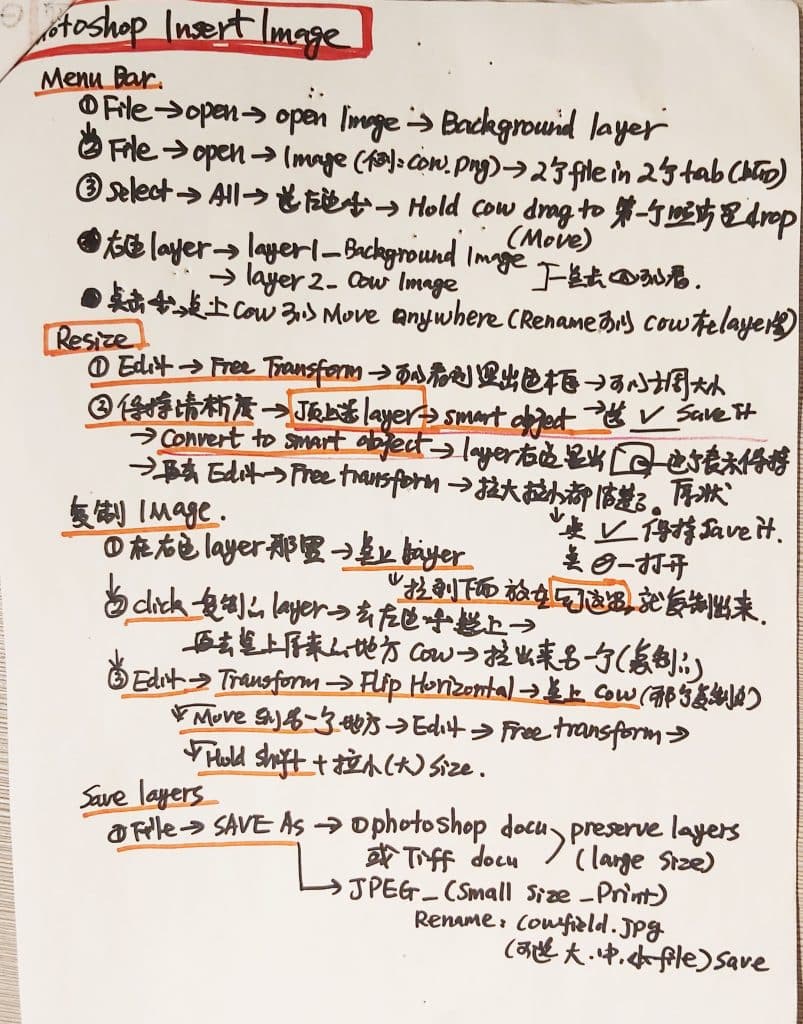 otoshop Insert Image
Menu Bar.
① File → open → open Image → Background layer
② File → open → Image (例: cow.png) → 2个file in 2个tab
③ Select → All → 选左边 → Hold cow drag to 第一个 drop
(Move)
右边 layer → layer 1 _ Background Image
→ layer 2 _ Cow Image 点去 可以看.
点击 → 点上 Cow 可以 Move anywhere (Rename 可以 cow 在 layer 里)
Resize
① Edit → Free Transform → 可以看到 显出 色框 → 可以调大小
② 保持清晰度 → 顶上选 layer → smart object → 选 ✓ Save it
→ Convert to smart object → layer 右边 显出 这个表示保持
→ 再去 Edit → Free transform → 拉大拉小都清楚了。 原状
↓点 ✓ 保持 Save it.
点 打开
复制 Image.
① 在右边 layer 那里 → 点上 layer
↳ 拉到下面 放在 这里, 就复制出来.
② click 复制 layer → 去左边 栏上 →
再去点上原来 地方 Cow → 拉出来另一个 (复制)
③ Edit → Transform → Flip Horizontal → 点上 cow (那个复制的)
↓ Move 到另一个地方 → Edit → Free transform →
↓ Hold shift + 拉小 (大) size.
Save layers
① File → SAVE As → ① photoshop docu > preserve layers
或 Tiff docu (large size)
→ JPEG _ (Small Size _ Print)
Rename: Cowfield.jpg
(可选 大. 中. 小 file) save